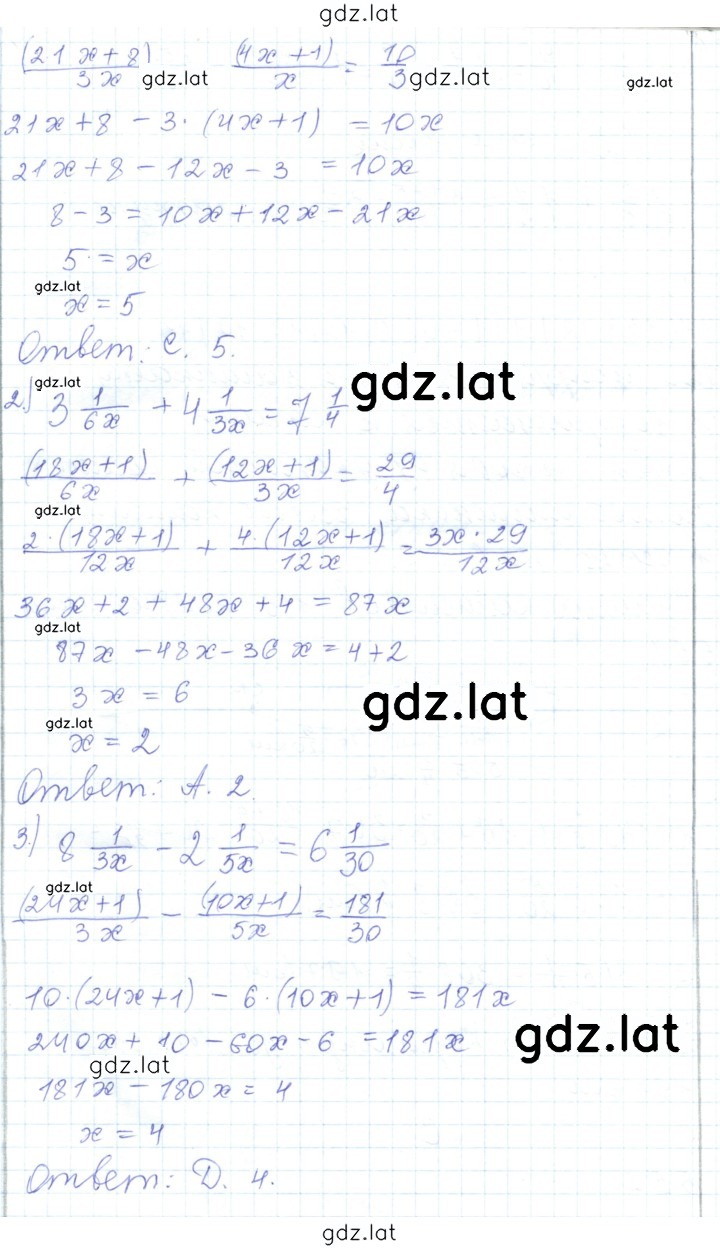 gdz.lat
(21x+8)/3x (4x+1)/x = 10/3
gdz.lat gdz.lat gdz.lat
21x+8 - 3·(4x+1) = 10x
21x+8-12x-3 = 10x
8-3=10x+12x-21x
5=x
gdz.lat
x=5
Ответ: С. 5.
gdz.lat
gdz.lat
2.) 3 1/6x + 4 1/3x = 7 1/4
(18x+1)/6x + (12x+1)/3x = 29/4
gdz.lat
2·(18x+1)/12x + 4·(12x+1)/12x = 3x·29/12x
36x+2+48x+4=87x
gdz.lat
87x-48x-36x=4+2
3x=6
gdz.lat
gdz.lat
x=2
Ответ: А. 2.
3.) 8 1/3x - 2 1/5x = 6 1/30
gdz.lat
(24x+1)/3x - (10x+1)/5x = 181/30
10·(24x+1) - 6·(10x+1) = 181x
240x+10-60x-6=181x
gdz.lat
gdz.lat
181x-180x=4
x=4
Ответ: D. 4.
gdz.lat